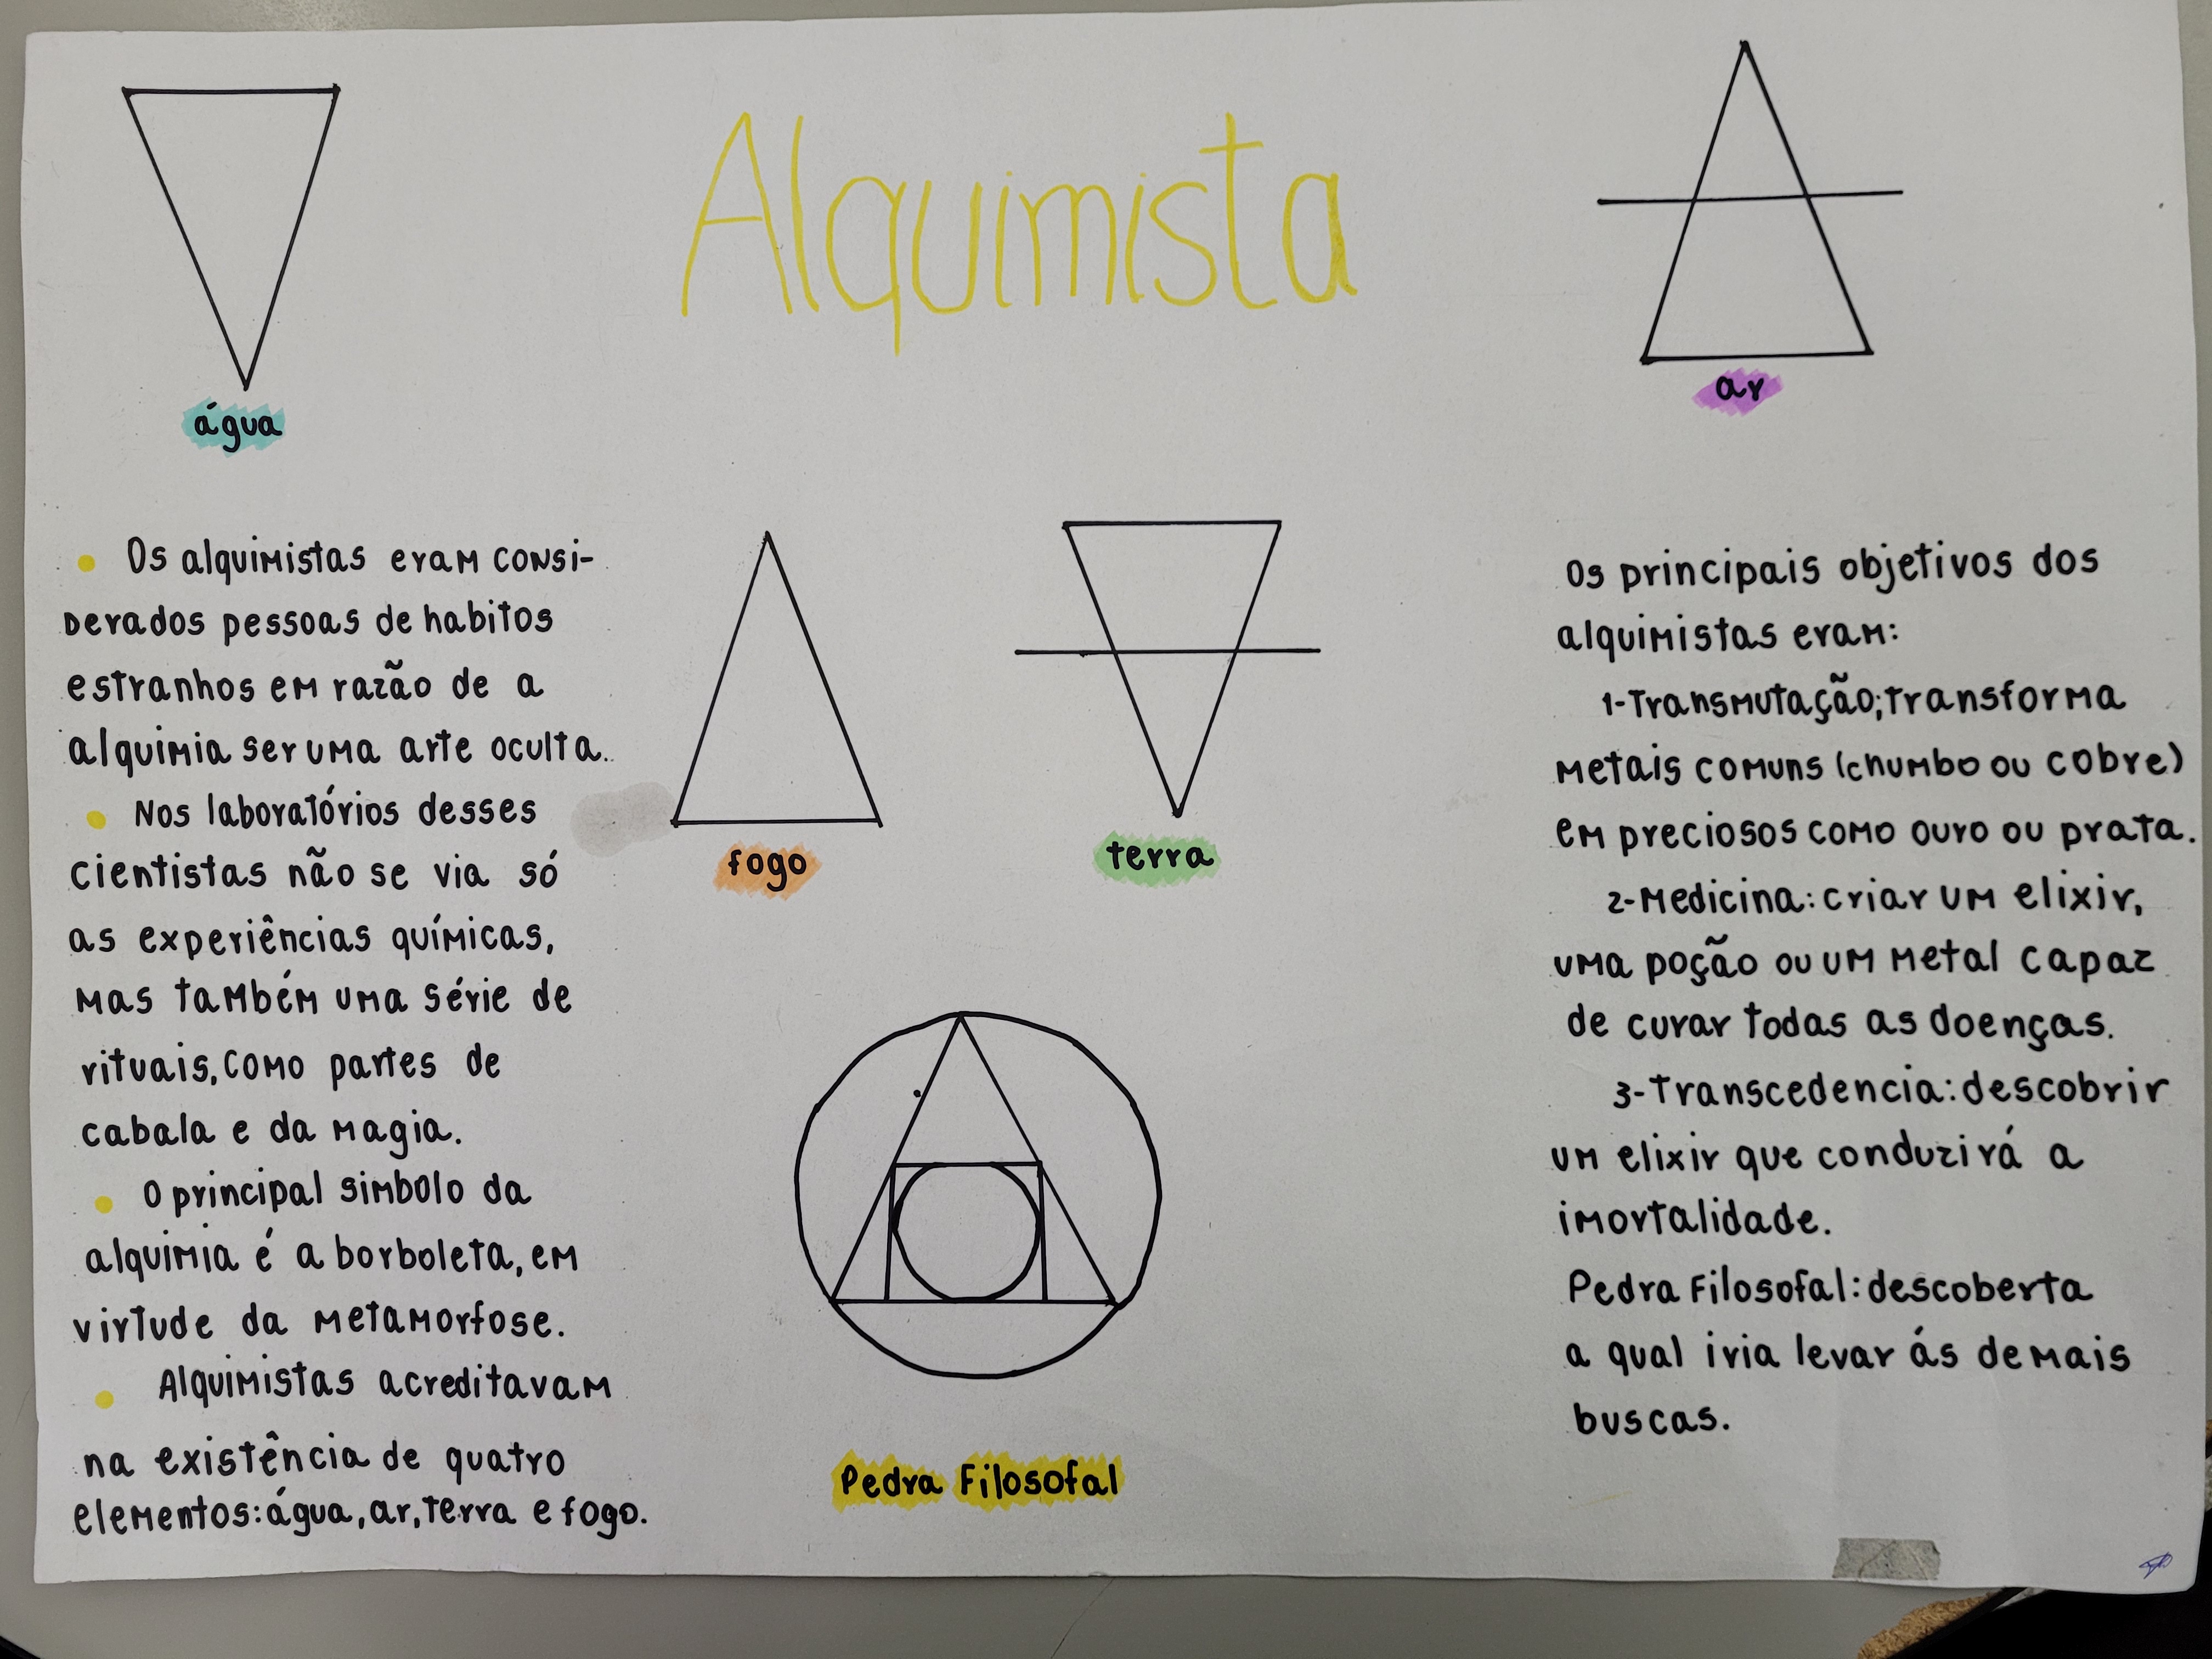 Alquimista
água
ar
• Os alquimistas eram consi-
derados pessoas de habitos
estranhos em razão de a
alquimia ser uma arte oculta.
• Nos laboratórios desses
cientistas não se via só
as experiências químicas,
mas também uma série de
rituais, como partes de
cabala e da magia.
• O principal simbolo da
alquimia é a borboleta, em
virtude da metamorfose.
• Alquimistas acreditavam
na existência de quatro
elementos: água, ar, terra e fogo.
fogo
terra
Pedra Filosofal
Os principais objetivos dos
alquimistas eram:
1-Transmutação; transforma
metais comuns (chumbo ou cobre)
em preciosos como ouro ou prata.
2-Medicina: criar um elixir,
uma poção ou um metal capaz
de curar todas as doenças.
3-Transcedencia: descobrir
um elixir que conduzirá a
imortalidade.
Pedra Filosofal: descoberta
a qual iria levar ás demais
buscas.